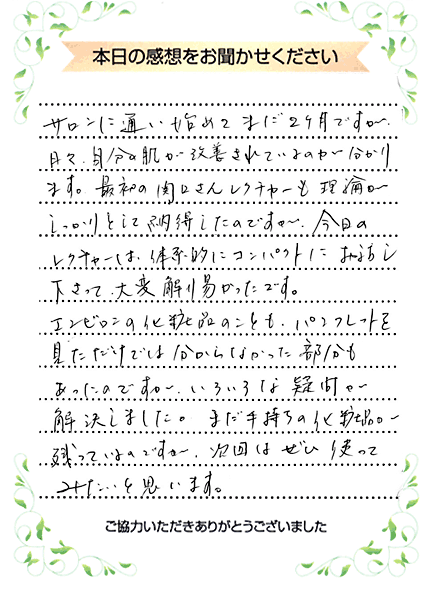 本日の感想をお聞かせください
サロンに通い始めてまだ2ヶ月ですが、
日々、自分の肌が改善されているのが分かり
ます。最初の関口さんレクチャーも理論が
しっかりとして納得したのですが、今日の
レクチャーは、体系的にコンパクトにお話し
下さって、大変解り易かったです。
エンビロンの化粧品のことも、パンフレットを
見ただけでは分からなかった部分も
あったのですが、いろいろな疑問が
解決しました。まだ手持ちの化粧品が
残っているのですが、次回はぜひ使って
みたいと思います。
ご協力いただきありがとうございました